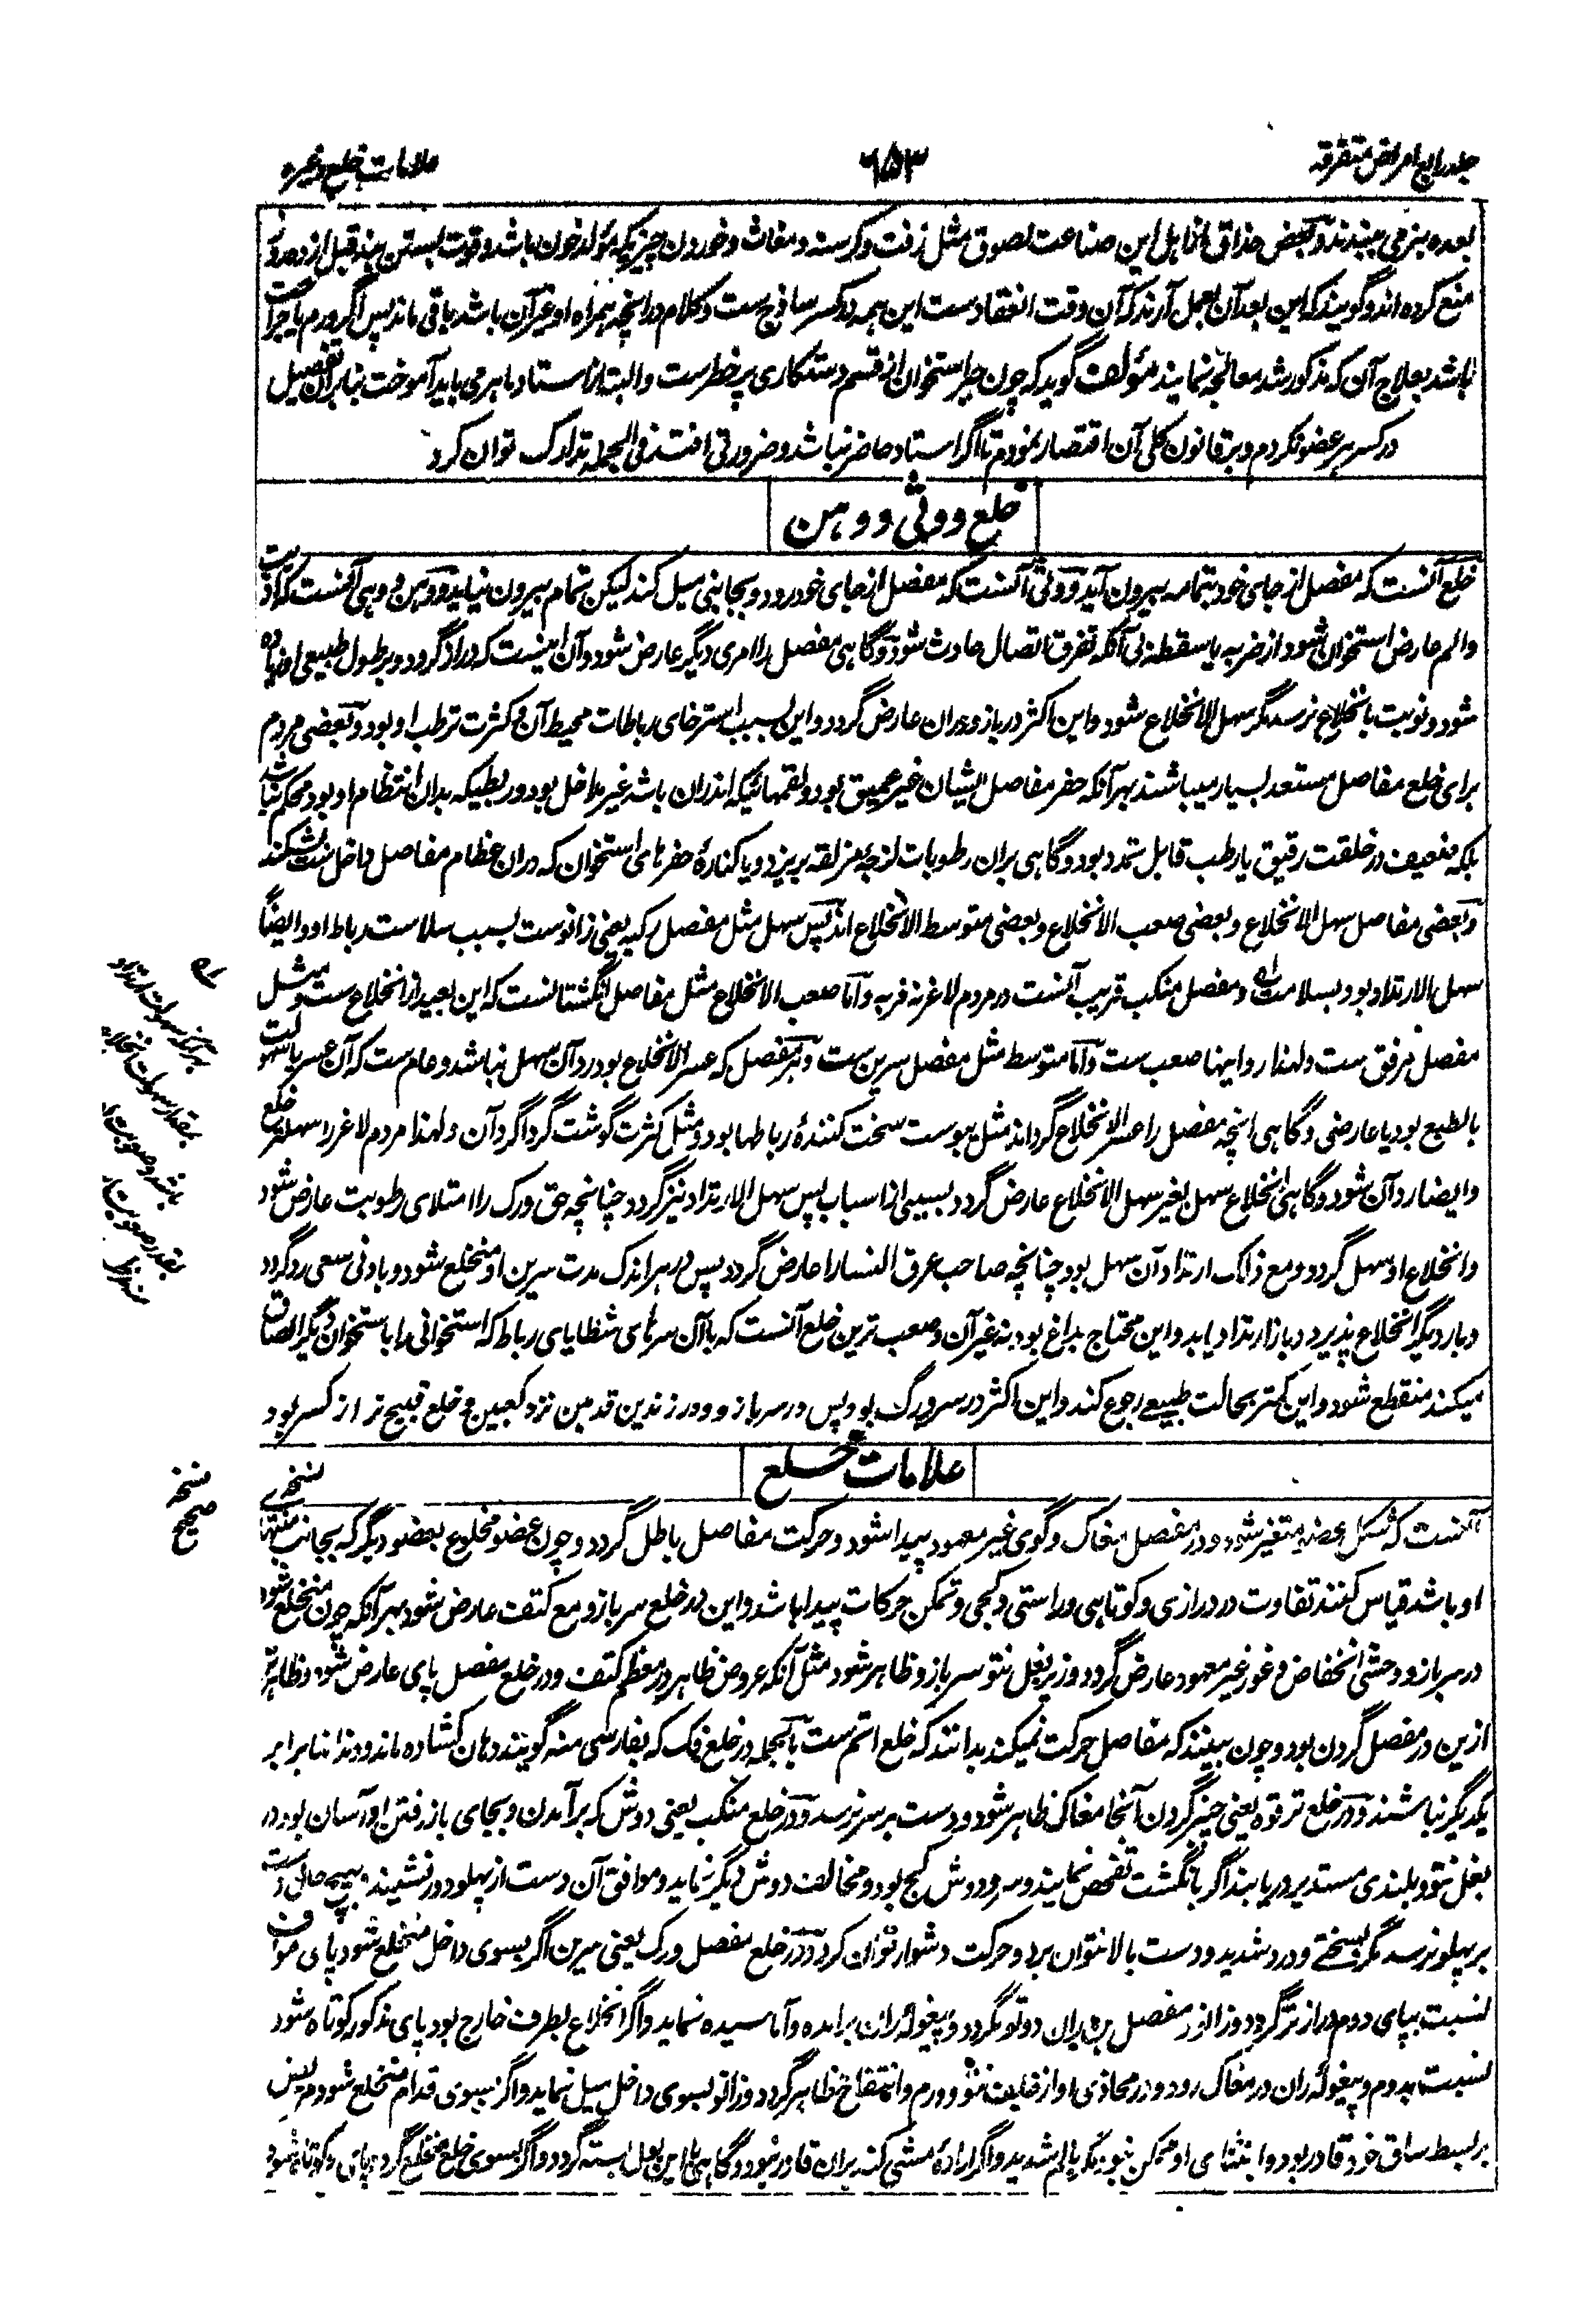 جلد رابع امراض متفرقه
۶۵۳
علامات خلع وغیره
بعده بنرمی ببندند و بعض حذاق از اهل این صناعت لصوق مثل زفت و کرسنه و مغاث و خوردن چیزیکه مولد خون باشد و قوت بستن بند قبل از ده روز
منع کرده اند و گویند که این بعد آن بعمل آرند که آن وقت انعقاد ست این همه در کسر ساذج ست و کلام در انچه همراه او غیر آن باشد باقی ماند پس اگر ورم یا جراحت
باشد بعلاج آن که مذکور شد معالجه نمایند مؤلف گوید که چون جبر استخوان از قسم دستکاری پر خطر ست و البته از استاد ماهر می باید آموخت بنا بران تفصیل
در کسر هر عضو نکردم و بر قانون کلی آن اقتصار نمودم تا اگر استاد حاضر نباشد و ضرورتی افتد فی الجمله تدارک توان کرد
خلع و وثی و وهن
خلع آنست که مفصل از جای خود بتمامه بیرون آید و وثی آنست که مفصل از جای خود رود و بجانبی میل کند لیکن بتمام بیرون نیاید و وهن و وهی آنست که اذیت
و الم عارض استخوان شود از ضربه یا سقطه بی آنکه تفرق اتصال حادث شود و گاهی مفصل را امری دیگر عارض شود و آن اینست که دراز گردد و بر طول طبیعی او زیاده
شود و نوبت بانخلاع نرسد مگر سهل الانخلاع شود و این اکثر در بازو و ران عارض گردد و این بسبب استرخای رباطات محیط آن و کثرت ترطب او بود و بعضی مردم
برای خلع مفاصل مستعد بسیار میباشند بهر آنکه حفر مفاصل ایشان غیر عمیق بود و لقمهائیکه اندران باشد غیر مداخل بود و ربطیکه بدان انتظام او بود محکم نباشد
بلکه ضعیف در خلقت رقیق یا رطب قابل تمدد بود و گاهی بران رطوبات لزجه مزلقه بریزد و یا کنارهٔ حفرهای استخوان که دران عظام مفاصل داخل ست بشکند
و بعضی مفاصل سهل الانخلاع و بعضی صعب الانخلاع و بعضی متوسط الانخلاع اند پس سهل مثل مفصل رکبه یعنی زانوست بسبب سلاست رباط او و ایضاً
سهل الارتداد بود بسلاست و مفصل منکب قریب آنست در مردم لاغر نه فربه و اما صعب الانخلاع مثل مفاصل انگشتانست که این بعید از انخلاع ست و مثل
مفصل مرفق ست و لهذا رد اینها صعب ست و اما متوسط مثل مفصل سرین ست و هر مفصل که عسر الانخلاع بود رد آن سهل نباشد و عام ست که آن عسر یا سهولت
بالطبع بود یا عارضی و گاهی انچه مفصل را عسر الانخلاع گرداند مثل یبوست سخت کنندهٔ رباطها بود و مثل کثرت گوشت گرداگرد آن و لهذا مردم لاغر را سهلتر خلع
و ایضا رد آن شود و گاهی انخلاع سهل بغیر سهل الانخلاع عارض گردد بسببی از اسباب پس سهل الارتداد نیز گردد چنانچه حق ورک را امتلای رطوبت عارض شود
و انخلاع او سهل گردد و مع ذلک ارتداد آن سهل بود چنانچه صاحب عرق النسا را عارض گردد پس در هر اندک مدت سرین او منخلع شود و بادنی سعی رد گردد
و بار دیگر انخلاع پذیرد و باز ارتداد یابد و این محتاج بداغ بود نه غیر آن و صعب ترین خلع آنست که با آن سرهای شظایای رباط که استخوانی را باستخوان دیگر الصاق
میکند منقطع شود و این کمتر بحالت طبیعی رجوع کند و این اکثر در سر ورک بود پس در سر بازو و در زندین قدمین نزد کعبین و خلع قبیح تر از کسر بود
علامات خلع
آنست که شکل عضو متغیر شود و در مفصل مغاک و گوی غیر معهود پیدا شود و حرکت مفاصل باطل گردد و چون عضو مخلوع بعضو دیگر که بجانب
او باشد قیاس کنند تفاوت در درازی و کوتاهی و راستی و کجی و تمکن حرکات پیدا باشد و این در خلع سر بازو مع کتف عارض شود بهر آنکه چون منخلع شود
در سر بازو وحشی انخفاض و غور غیر معهود عارض گردد و زیر بغل نتو سر بازو ظاهر شود مثل آنکه عروض ظاهر در معظم کتف و در خلع مفصل پای عارض شود و ظاهرتر
ازین در مفصل گردن بود و چون ببینند که مفاصل حرکت نمیکند بدانند که خلع اتم ست بالجمله در خلع فک که بفارسی منه گویند دهان کشاده ماند و دندانها برابر
یکدیگر نباشند و در خلع ترقوه یعنی چنبر گردن آنجا مغاک ظاهر شود و دست بر سر نرسد و در خلع منکب یعنی دوش که برآمدن و بجای باز رفتن او آسان بود در
بغل نتو و بلندی مستدیر دریابند اگر بانگشت تفحص نمایند و سر دوش کج بود و مخالف دوش دیگر نماید و موافق آن دست از پهلو دور نشیند و بهیچ حالی دست
بر پهلو نرسد مگر بسختی و درد شدید و دست بالا نتوان برد و حرکت دشوار توان کرد و در خلع مفصل ورک یعنی سرین اگر بسوی داخل منخلع شود پای موافق
نسبت بپای دوم دراز تر گردد و زانو از مفصل ران دوتو نگردد و پیغولهٔ ران برآمده و آماسیده نماید و اگر انخلاع بطرف خارج بود پای مذکور کوتاه شود
نسبت بدوم و پیغولهٔ ران در مغاک رود و در محاذی او از خلف نتو و ورم و انتفاخ ظاهر گردد و زانو بسوی داخل میل نماید و اگر بسوی قدام منخلع شود مریض
بر بسط ساق خود قادر بود و انثنای او ممکن نبود مگر بالم شدید و اگر ارادهٔ مشی کند بران قادر نبود و گاهی بول بسته گردد و اگر بسوی خلف منخلع گردد پای کوتاه شود
نسخه
صحیح